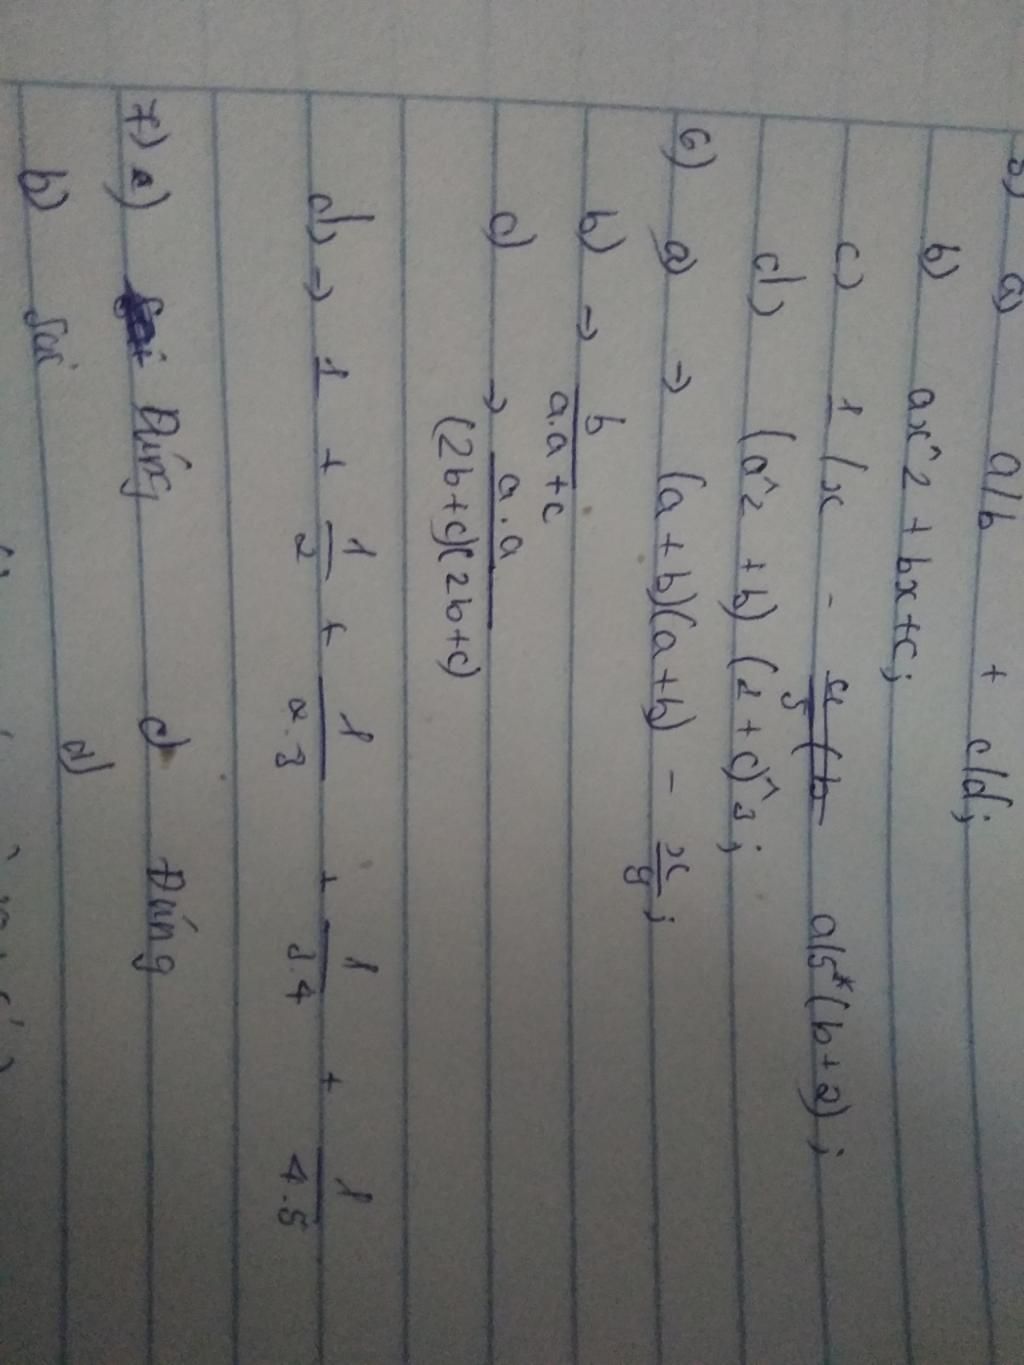 a) a/b + c/d;
b) ax^2 + bx+c;
c) 1/x - a/5*(b+2);
d) (a^2 +b) (1+c)^3;
6) a) → (a+b)(a+b) - x/y;
b) → b/(a.a+c)
c) → a.a/((2b+c)(2b+c))
d) → 1 + 1/2 + 1/2.3 + 1/3.4 + 1/4.5
7) a) Đúng c) Đúng
b) Sai d)